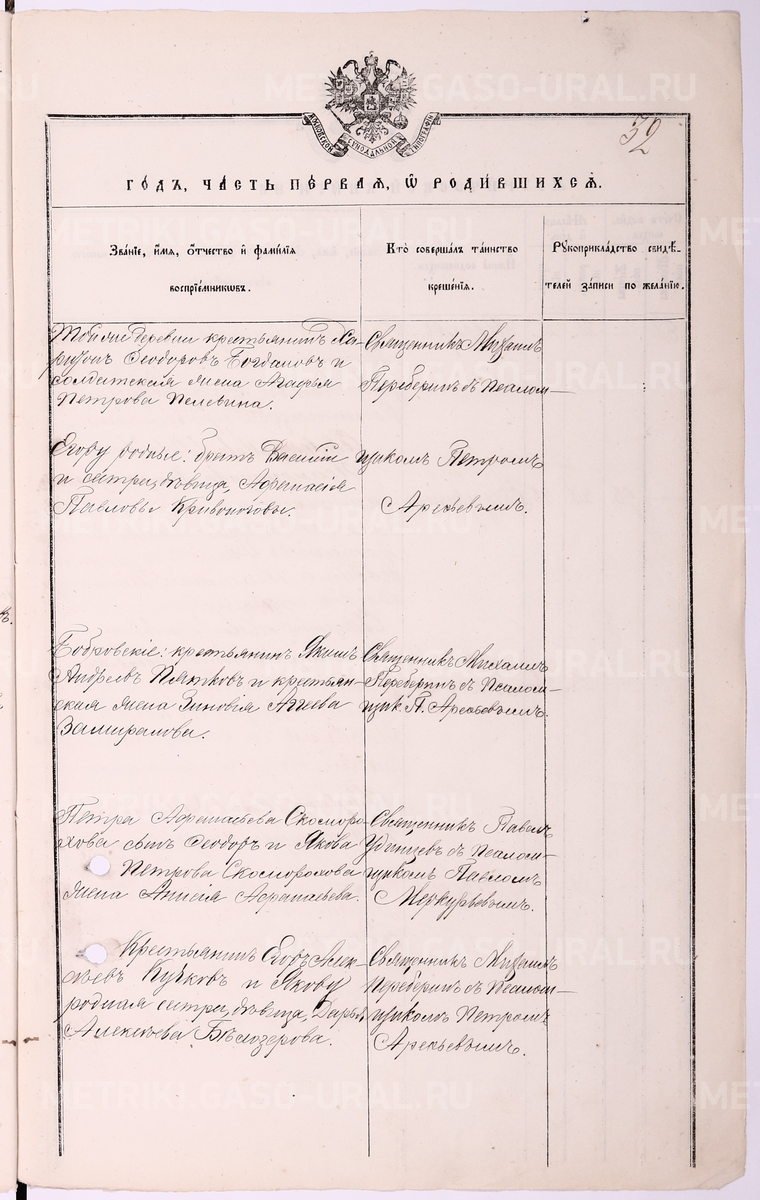 METRIKI.GASO-URAL.RU
МОСКОВСКОЙ СѴНОДАЛЬНОЙ ТИПОГРАФІИ
32
ГОДЪ, ЧАСТЬ ПЕРВАЯ, Ѡ РОДИВШИХСѦ.
Званіе, имя, отчество и фамилія
воспріемниковъ.
Кто совершалъ таинство
крещенія.
Рукоприкладство свидѣ-
телей записи по желанію.
Тойже деревни крестьянинъ Ха-
ритонъ Ѳеодоровъ Богдановъ и
солдатская жена Агафья
Петрова Пелевина.
Священникъ Михаилъ
Переберинъ съ Псалом-
Егору родные: братъ Василій
и сестра, дѣвица, Аѳанасія
Павловы Кривоноговы.
щикомъ Петромъ
Арефьевымъ.
Бобровскіе: крестьянинъ Якимъ
Андреевъ Пьянковъ и крестьян-
ская жена Зиновія Агѣева
Замиралова.
Священникъ Михаилъ
Переберинъ съ Псалом-
щик. П. Арефьевымъ.
Петра Аѳанасьева Скоморо-
хова сынъ Ѳеодоръ и Якова
Петрова Скоморохова
жена Анисія Аѳанасьева.
Священникъ Павелъ
Удинцевъ съ Псалом-
щикомъ Павломъ
Меркурьевымъ.
Крестьянинъ Егоръ Алек-
сѣевъ Кучковъ и Якову
родная сестра, дѣвица, Дарья
Алексѣева Бѣлозерова.
Священникъ Михаилъ
Переберинъ съ Псалом-
щикомъ Петромъ
Арефьевымъ.